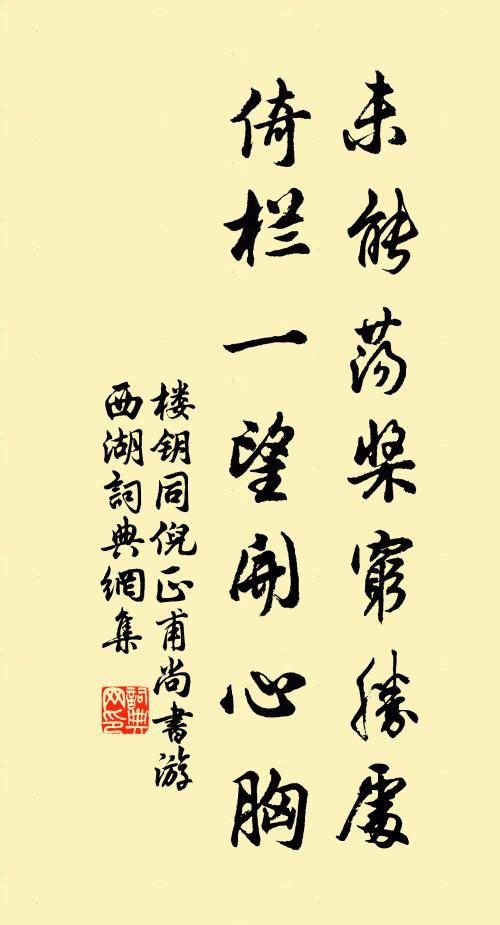 未能荡桨穷勝處
倚栏一望開心胸
楼钥同倪正甫尚書游
西湖詞典網集
詞典網印